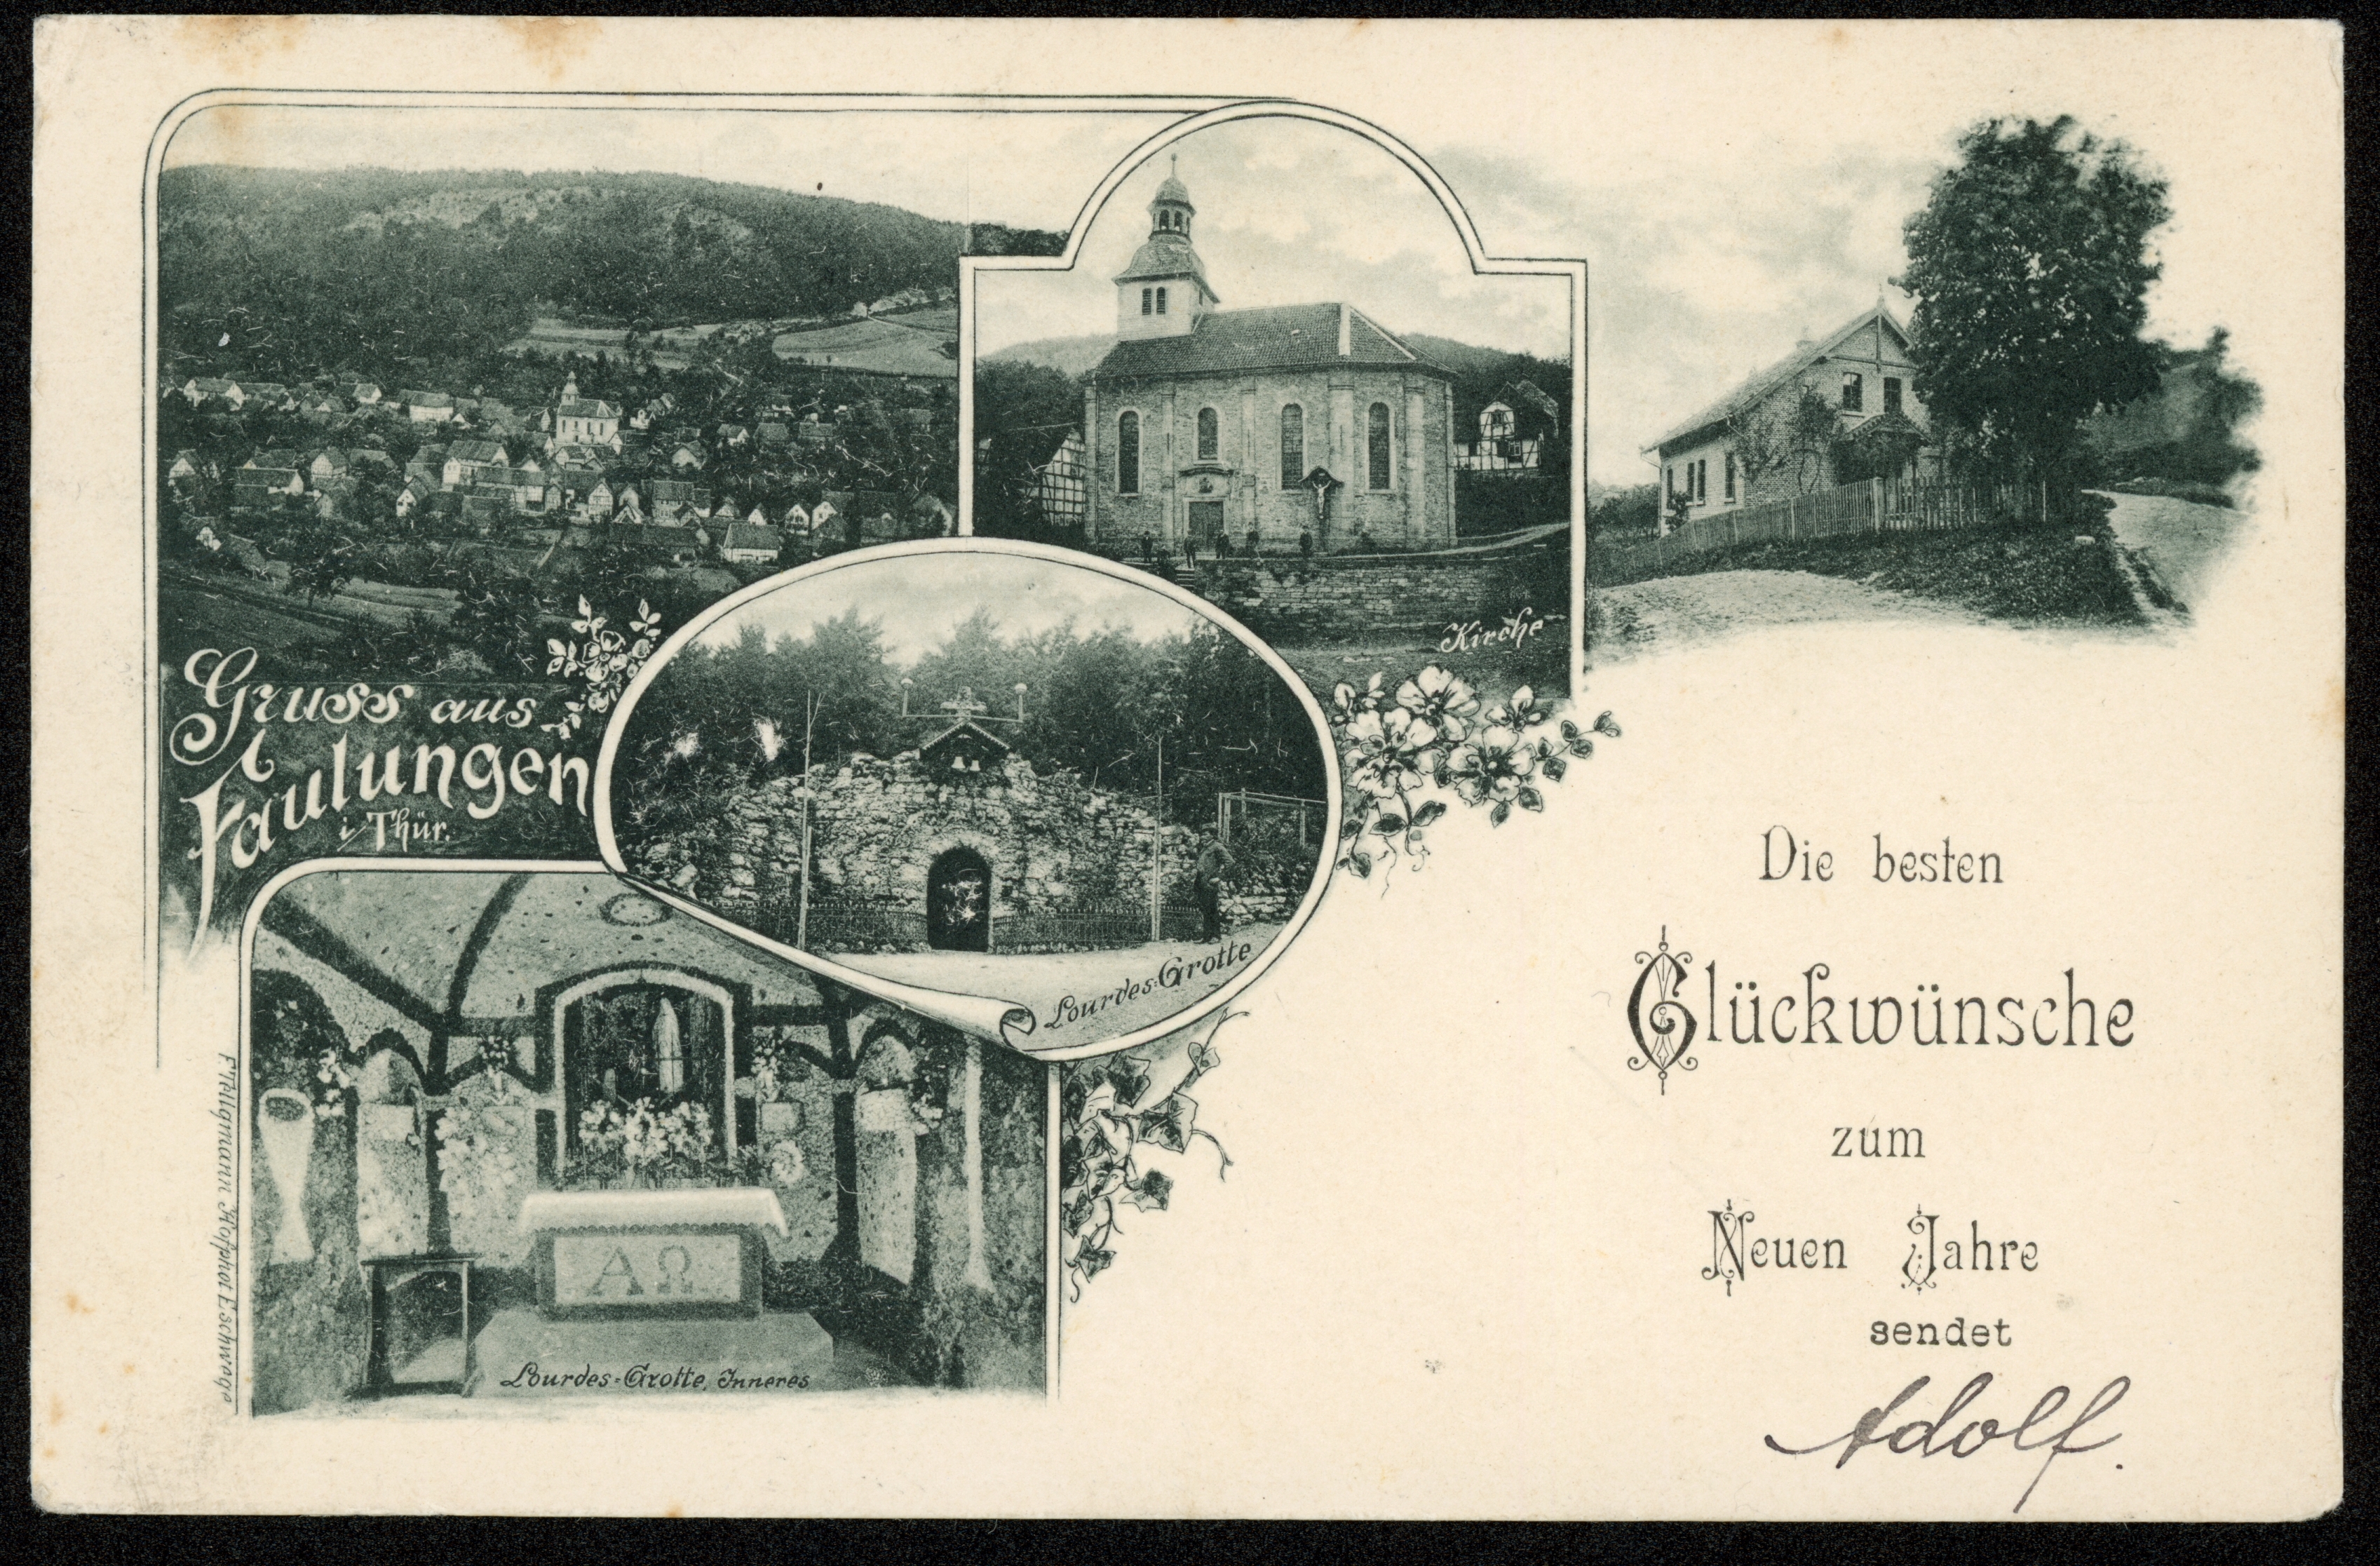 Gruss aus
Faulungen
i/Thür.
Kirche
Lourdes=Grotte
Lourdes=Grotte, Inneres
F Tellgmann Hofphot Eschwege
ΑΩ
Die besten
Glückwünsche
zum
Neuen Jahre
sendet
Adolf.